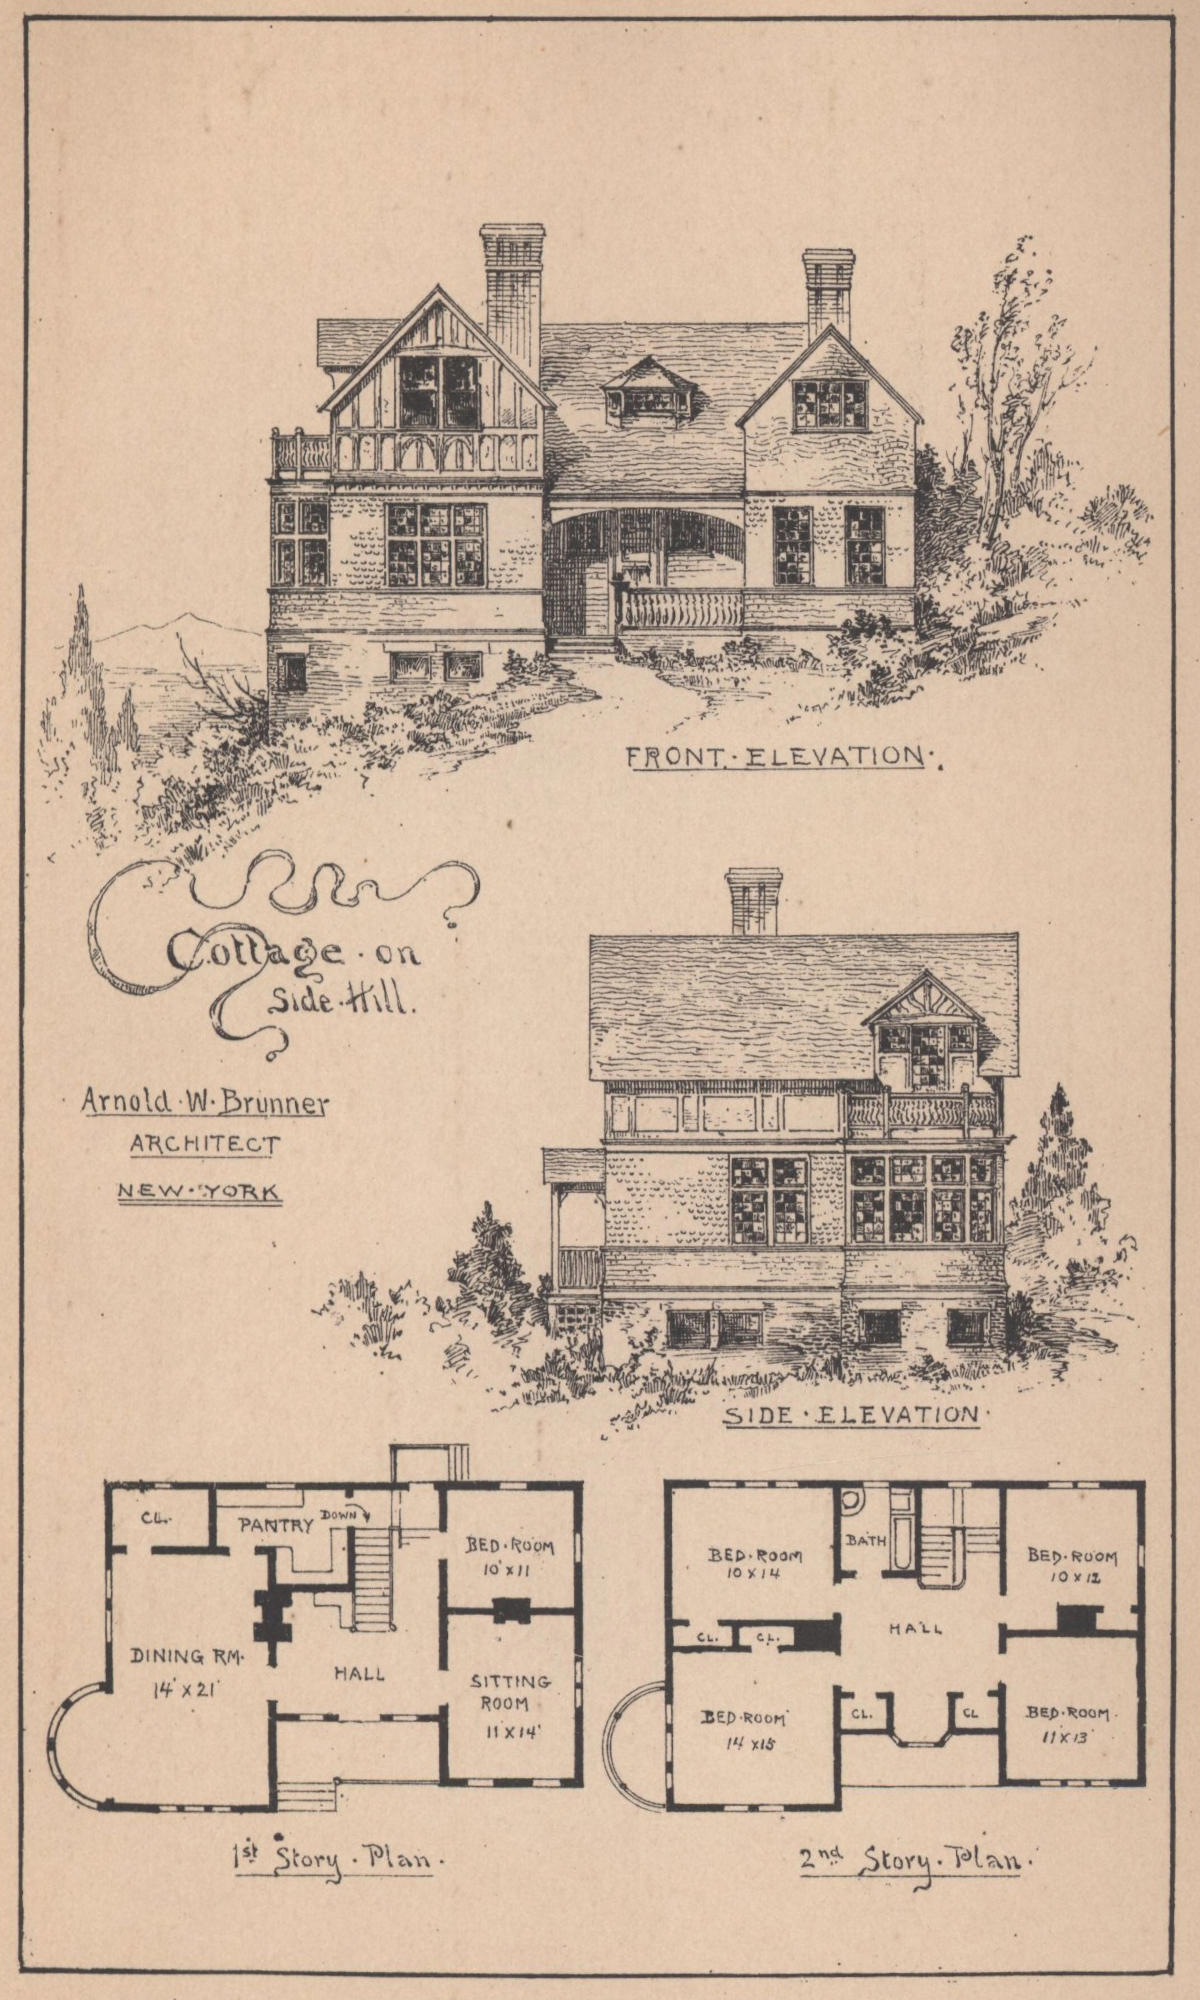 FRONT · ELEVATION ·
Cottage · on
Side · Hill.
Arnold · W · Brunner
ARCHITECT
NEW · YORK
SIDE · ELEVATION ·
CL.
PANTRY
DOWN
BED · ROOM
10' x 11
DINING RM.
14' x 21'
HALL
SITTING
ROOM
11' x 14'
1st Story · Plan ·
BED · ROOM
10 x 14
BATH
BED · ROOM
10 x 12
CL.
CL.
HALL
BED · ROOM
14 x 15
CL.
CL
BED · ROOM.
11 x 13
2nd Story · Plan ·